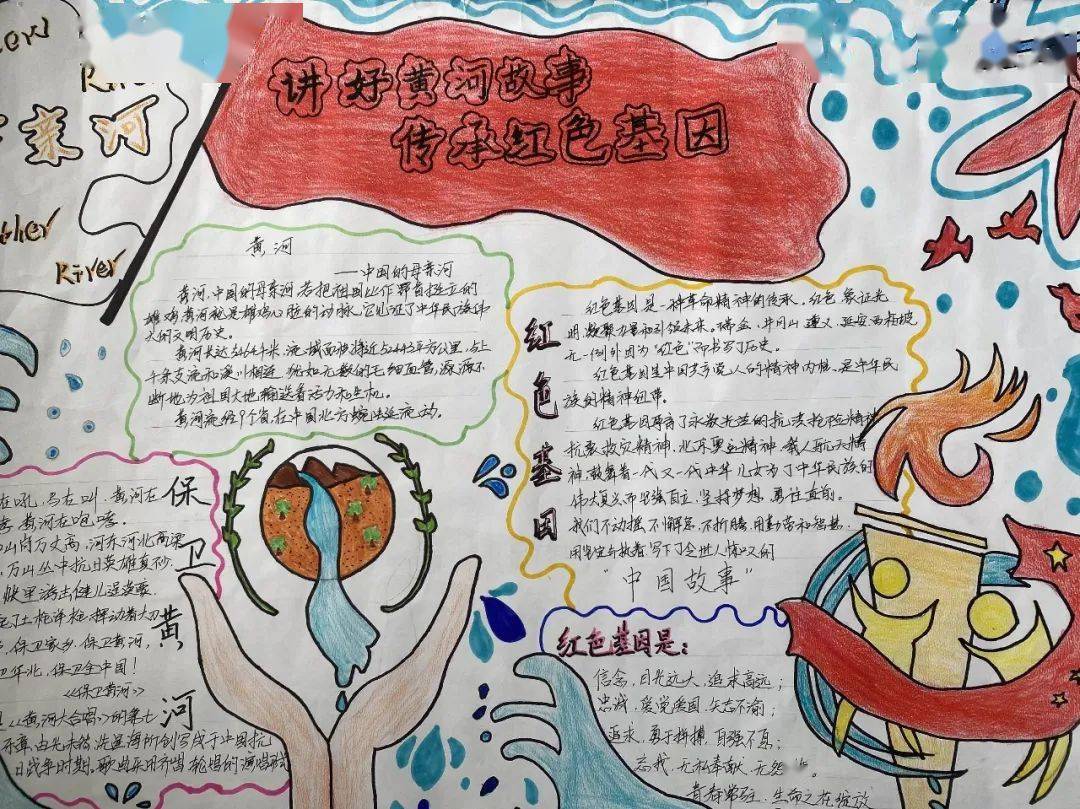 讲好黄河故事
传承红色基因
River
亲河
River
黄河
——中国的母亲河
黄河,中国的母亲河若把祖国比作昂首挺立的
雄鸡黄河就是雄鸡心脏的动脉,它见证了中华民族伟
大的文明历史。
黄河长达5464千米,流域面积将近752443平方公里,上
千条支流和溪川相连,犹如无数的毛细血管,源源不
断地为祖国大地输送着活力和生机。
黄河流经9个省,在中国北方蜿蜒流动。
保卫黄河
在吼,马在叫,黄河在
黄河在咆哮。
山岗万丈高,河东河北高粱
万山丛中抗日英雄真不少,
游击健儿逞英豪
土枪洋枪,挥动着大刀
保卫家乡,保卫黄河,
卫华北,保卫全中国!
《保卫黄河》
《黄河大合唱》的第七
乐章,由光未然,冼星海所创写成于中国抗
日战争时期。歌曲采用齐唱、轮唱的演唱形式
红色基因
红色基因是一种革命精神的传承,红色象征光
明,凝聚力量和引领未来。瑞金,井冈山,遵义,延安,西柏坡
无一例外因为“红色”而书写了历史。
红色基因是中国共产党人的精神内核,是中华民
族的精神纽带。
红色基因孕育了永放光芒的抗洪抢险精神
抗震救灾精神,北京奥运精神,载人航天精
神,鼓舞着一代又一代中华儿女为了中华民族的
伟大复兴而坚强自立,坚持梦想,勇往直前。
我们不动摇,不懈怠,不折腾,用勤劳和智慧
用坚定与执着,写下了令世人惊叹的
“中国故事”
红色基因是:
信念,目光远大,追求高远;
忠诚,爱党爱国,矢志不渝;
追求,勇于拼搏,自强不息;
忘我,无私奉献,无怨
青春常在,生命之花绽放